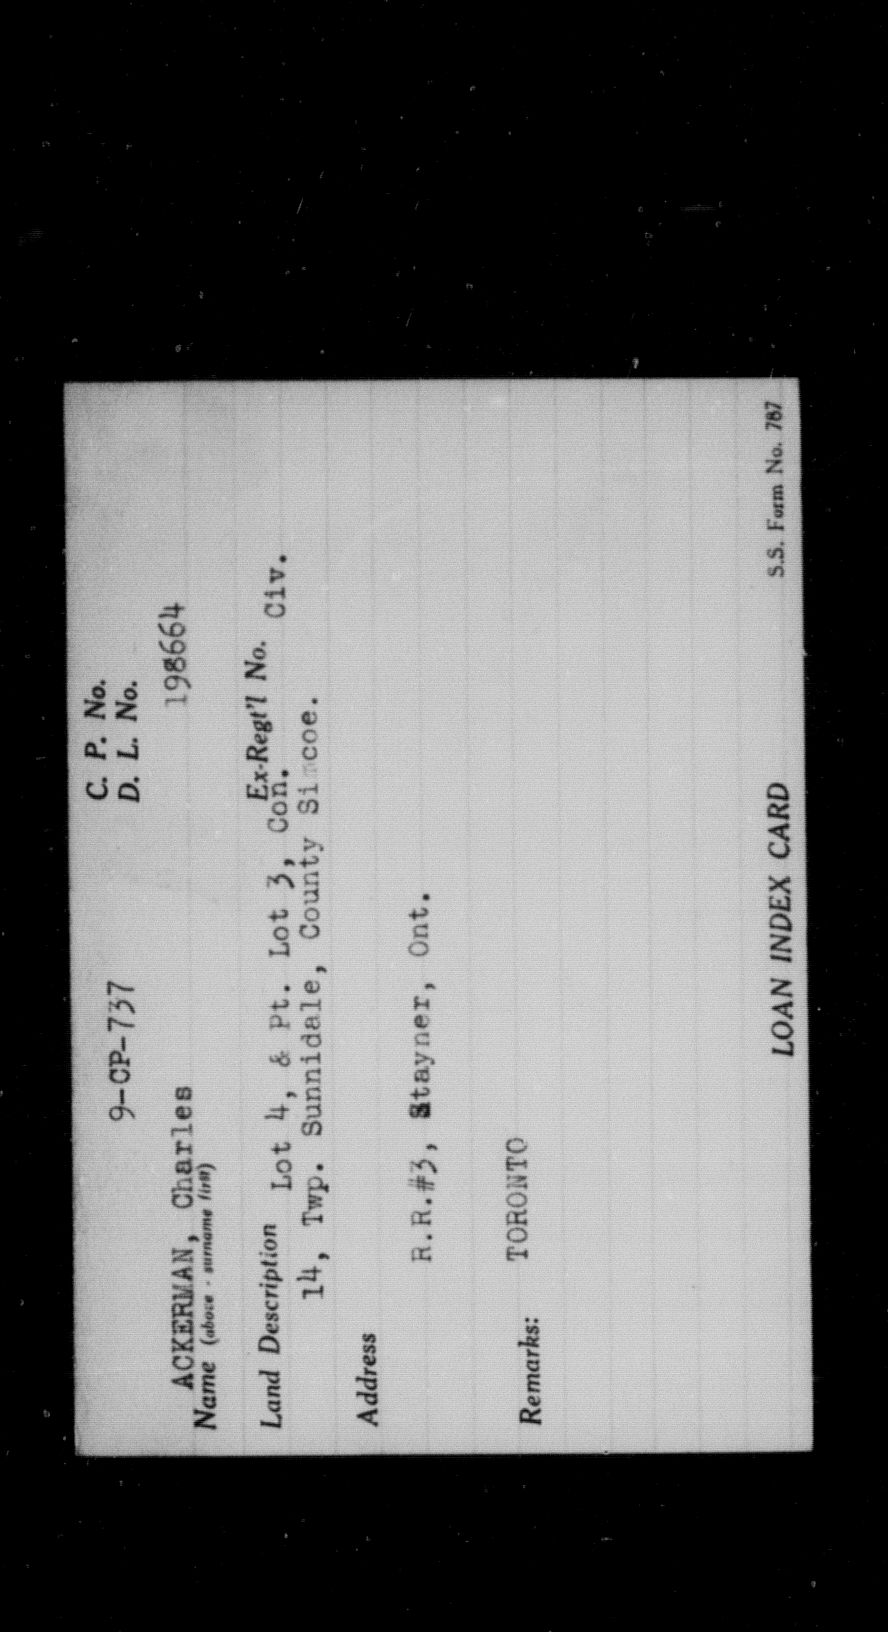 9-CP-737 C. P. No.
D. L. No.
ACKERMAN, Charles 198664
Name (above - surname first)
Ex-Regt'l No. Civ.
Land Description Lot 4, & Pt. Lot 3, Con.
14, Twp. Sunnidale, County Simcoe.
Address
R.R.#3, Stayner, Ont.
Remarks: TORONTO
LOAN INDEX CARD S.S. Form No. 787